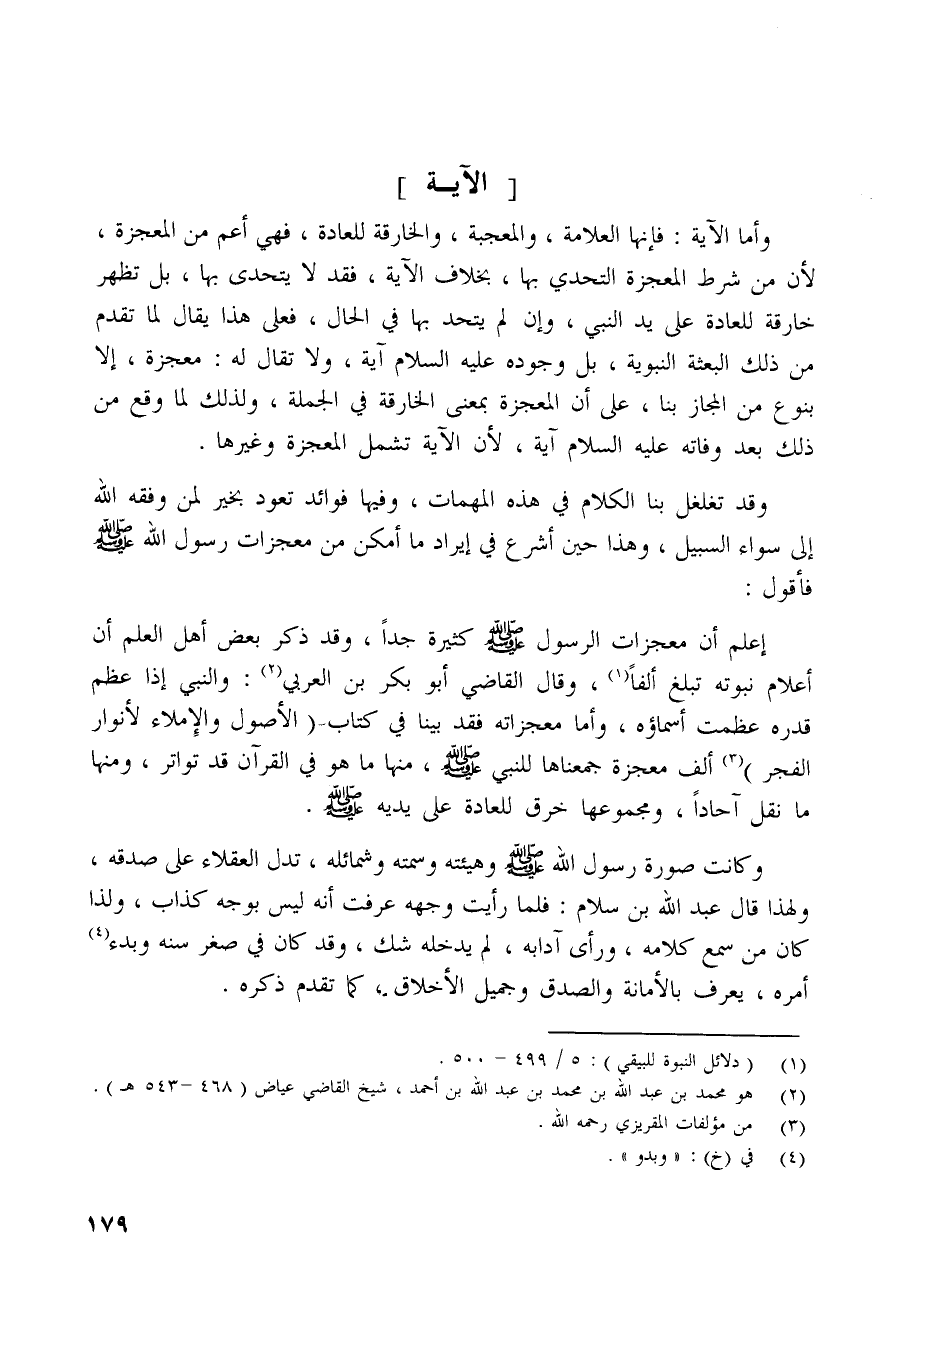 [ الآيــة ]
وأما الآية : فإنها العلامة ، والمعجبة ، والخارقة للعادة ، فهي أعم من المعجزة ،
لأن من شرط المعجزة التحدي بها ، بخلاف الآية ، فقد لا يتحدى بها ، بل تظهر
خارقة للعادة على يد النبي ، وإن لم يتحد بها في الحال ، فعلى هذا يقال لما تقدم
من ذلك البعثة النبوية ، بل وجوده عليه السلام آية ، ولا تقال له : معجزة ، إلا
بنوع من المجاز بنا ، على أن المعجزة بمعنى الخارقة في الجملة ، ولذلك لما وقع من
ذلك بعد وفاته عليه السلام آية ، لأن الآية تشمل المعجزة وغيرها .
وقد تغلغل بنا الكلام في هذه المهمات ، وفيها فوائد تعود بخير لمن وفقه الله
إلى سواء السبيل ، وهذا حين أشرع في إيراد ما أمكن من معجزات رسول الله ﷺ
فأقول :
إعلم أن معجزات الرسول ﷺ كثيرة جداً ، وقد ذكر بعض أهل العلم أن
أعلام نبوته تبلغ ألفاً(١) ، وقال القاضي أبو بكر بن العربي(٢) : والنبي إذا عظم
قدره عظمت أسماؤه ، وأما معجزاته فقد بينا في كتاب-( الأصول والإملاء لأنوار
الفجر )(٣) ألف معجزة جمعناها للنبي ﷺ ، منها ما هو في القرآن قد تواتر ، ومنها
ما نقل آحاداً ، ومجموعها خرق للعادة على يديه ﷺ .
وكانت صورة رسول الله ﷺ وهيئته وسمته وشمائله ، تدل العقلاء على صدقه ،
ولهذا قال عبد الله بن سلام : فلما رأيت وجهه عرفت أنه ليس بوجه كذاب ، ولذا
كان من سمع كلامه ، ورأى آدابه ، لم يدخله شك ، وقد كان في صغر سنه وبدء(٤)
أمره ، يعرف بالأمانة والصدق وجميل الأخلاق ، كما تقدم ذكره .
(١) ( دلائل النبوة للبيقي ) : ٥ / ٤٩٩ - ٥٠٠ .
(٢) هو محمد بن عبد الله بن محمد بن عبد الله بن أحمد ، شيخ القاضي عياض ( ٤٦٨ -٥٤٣ هـ ) .
(٣) من مؤلفات المقريزي رحمه الله .
(٤) في (خ) : « وبدو » .
١٧٩